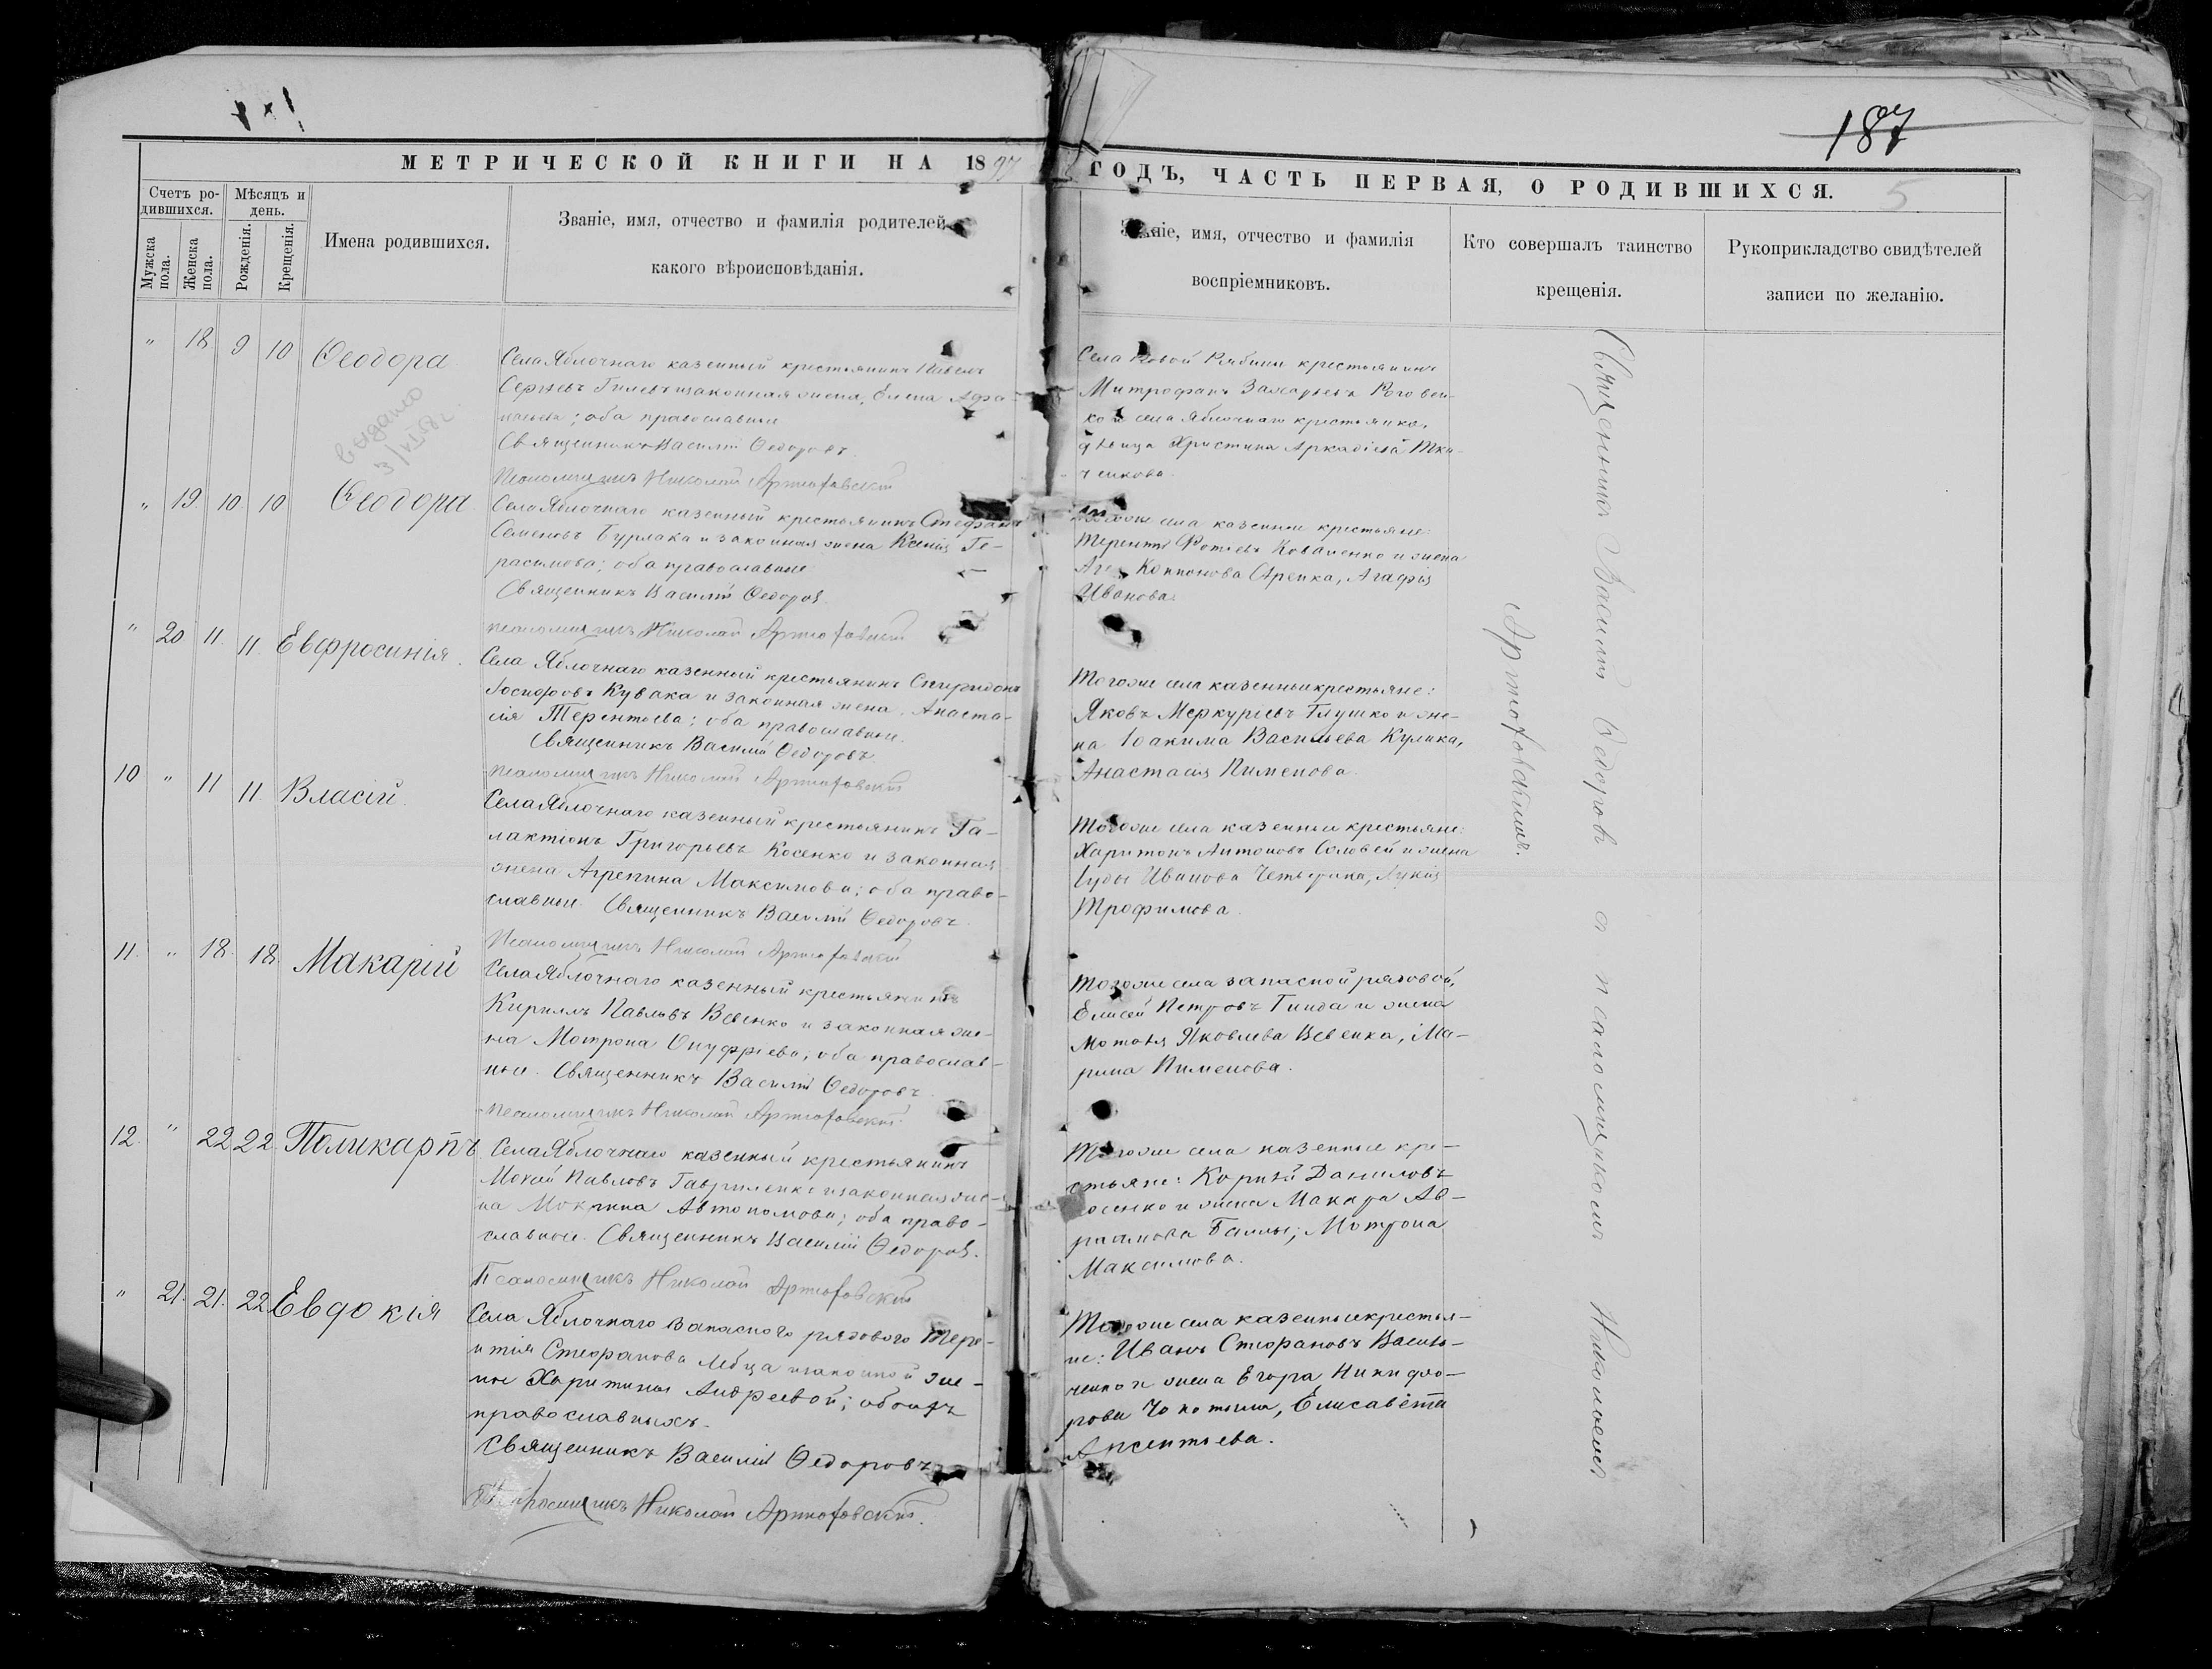 187
5
МЕТРИЧЕСКОЙ КНИГИ НА 1897
ГОДЪ, ЧАСТЬ ПЕРВАЯ, О РОДИВШИХСЯ.
Счетъ ро-
дившихся.
Мужска
пола.
Женска
пола.
Мѣсяцъ и
день.
Рожденія.
Крещенія.
Имена родившихся.
Званіе, имя, отчество и фамилія родителей
какого вѣроисповѣданія.
имя, отчество и фамилія
воспріемниковъ.
Кто совершалъ таинство
крещенія.
Рукоприкладство свидѣтелей
записи по желанію.
" 18 9 10 Ѳеодора
выдано
Села Яблочнаго казенный крестьянинъ Павелъ
Сергѣевъ законная жена, Елена Афа-
насьева; оба православные
Священникъ Василій Ѳедоровъ.
Псаломщикъ Николай Артюховскій
Села Новой Рябины крестьянинъ
Митрофанъ Захарьевъ Роговен-
ко и села Яблочнаго крестьянка,
дѣвица Христина Аркадіева Тка-
ченкова.
" 19. 10. 10 Ѳеодора
Села Яблочнаго казенный крестьянинъ Стефанъ
Семеновъ Бурлака и законная жена Ксенія Ге-
расимова; оба православные
Священникъ Василій Ѳедоровъ.
Псаломщикъ Николай Артюховскій
села казенные крестьяне:
Терентій Фотіевъ Коваленко и жена
Агафія
Иванова.
" 20 11. 11. Евфросинія.
Села Яблочнаго казенный крестьянинъ Спиридонъ
Іосифовъ Кувака и законная жена Анаста-
сія Терентьева; оба православные.
Священникъ Василій Ѳедоровъ.
Псаломщикъ Николай Артюховскій
Тогоже села казенные крестьяне:
Яковъ Меркурьевъ Глушко и же-
на Іоакима Васильева Кулика,
Анастасія Пименова.
10 " 11 11. Власій.
Села Яблочнаго казенный крестьянинъ Га-
лактіонъ Григорьевъ Косенко и законная
жена Агрепина Максимова; оба право-
славные. Священникъ Василій Ѳедоровъ.
Псаломщикъ Николай Артюховскій
Тогоже села казенные крестьяне:
Харитонъ Антоновъ Соловей и жена
Іуды Иванова Лукія
Трофимова.
11. " 18. 18. Макарій
Села Яблочнаго казенный крестьянинъ
Кириллъ Павловъ Вовенко и законная же-
на Мотрона Онуфріева; оба православ-
ные. Священникъ Василій Ѳедоровъ.
Псаломщикъ Николай Артюховскій.
Тогоже села запасной рядовой,
Елисей Петровъ Гинда и жена
Яковлева Ма-
рина Пименова.
12. " 22 22. Поликарпъ
Села Яблочнаго казенный крестьянинъ
Мокей Павловъ Гавриленко и законная же-
на Мокрина Автономова; оба право-
славные. Священникъ Василій Ѳедоровъ.
Псаломщикъ Николай Артюховскій
Тогоже села казенные кре-
стьяне: Корній Даниловъ
и жена Макара Ав-
раамова Баллы; Мотрона
Максимова.
" 21. 21. 22 Евдокія
Села Яблочнаго запасного рядового Тере-
нтія Стефанова и законной же-
ны Харитины Андреевой; обоихъ
православныхъ.
Священникъ Василій Ѳедоровъ
Псаломщикъ Николай Артюховскій.
Тогоже села казенные крестья-
не: Иванъ Стефановъ Василь-
ченко и жена Егора Никифо-
рова Елисавета
Авксентьева.
Священникъ Василій Ѳедоровъ съ псаломщикомъ Николаемъ
Артюховскимъ.